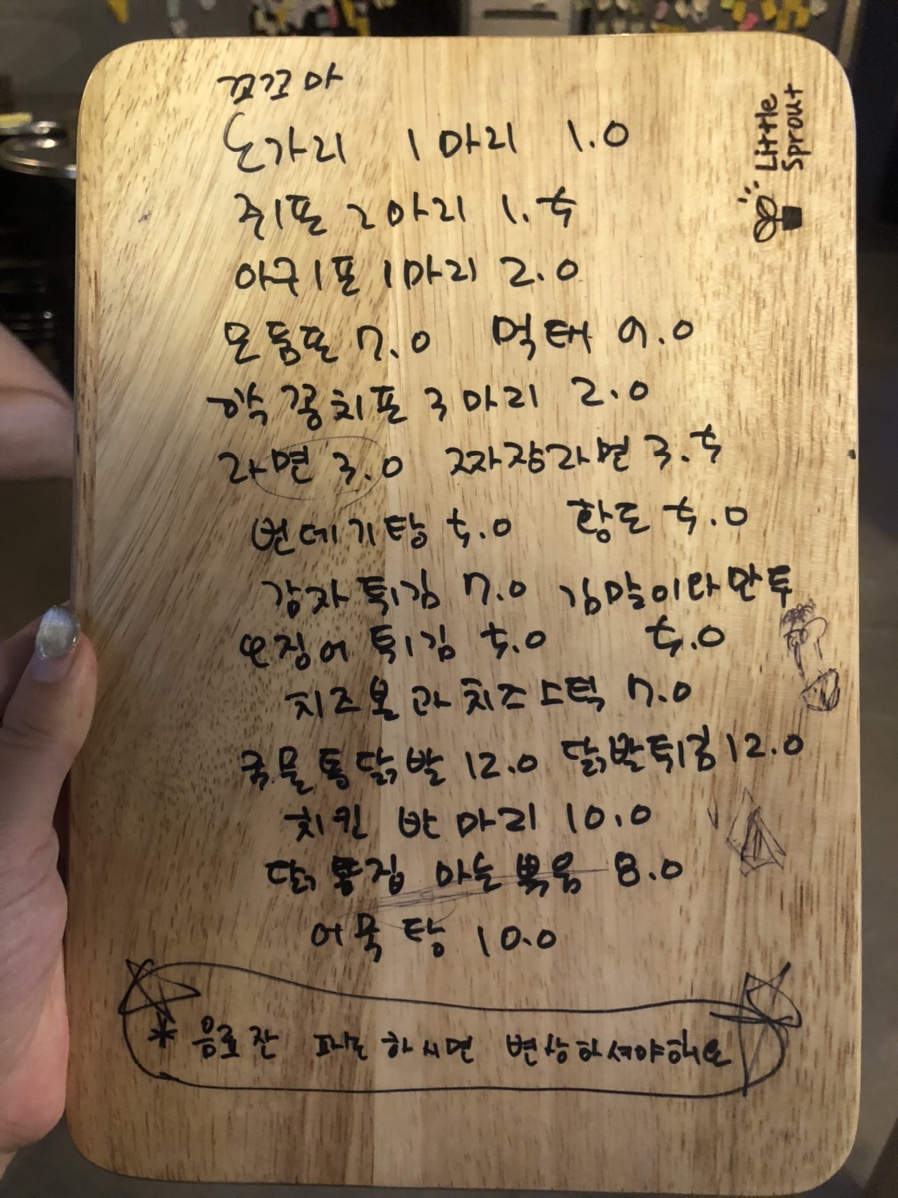 꼬꼬마
노가리 1마리 1.0
쥐포 2마리 1.5
아귀포 1마리 2.0
모듬포 7.0 먹태 9.0
학꽁치포 3마리 2.0
라면 3.0 짜장라면 3.5
번데기탕 5.0 황도 5.0
감자튀김 7.0 김말이랑만두
오징어 튀김 5.0 5.0
치즈볼과 치즈스틱 7.0
국물통닭발 12.0 닭발튀김 12.0
치킨 반마리 10.0
닭똥집 마늘볶음 8.0
어묵탕 10.0
* 음료잔 파손하시면 변상하셔야해요
Little
Sprout